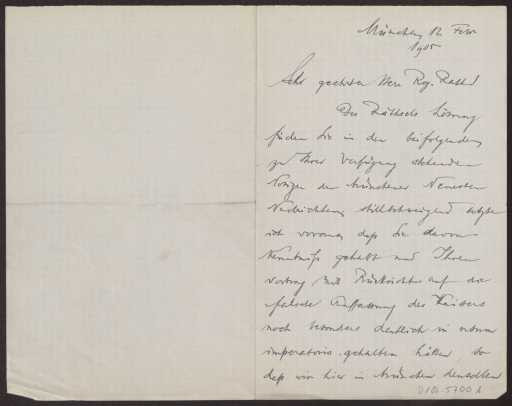 München 12 Febr
1905
Sehr geehrter Herr Reg. Rath!
Des Räthsels Lösung
finden Sie in der beifolgenden
zu Ihrer Verfügung stehenden
Notiz der Münchener Neuesten
Nachrichten, stillschweigend setzte
ich voraus, daß Sie davon
Kenntniß gehabt und Ihren
Vortrag mit Rücksicht auf die
falsche Auffassung des Kaisers
noch besonders deutlich in
imperatoris gehalten hätten, so
daß wir hier in München denselben